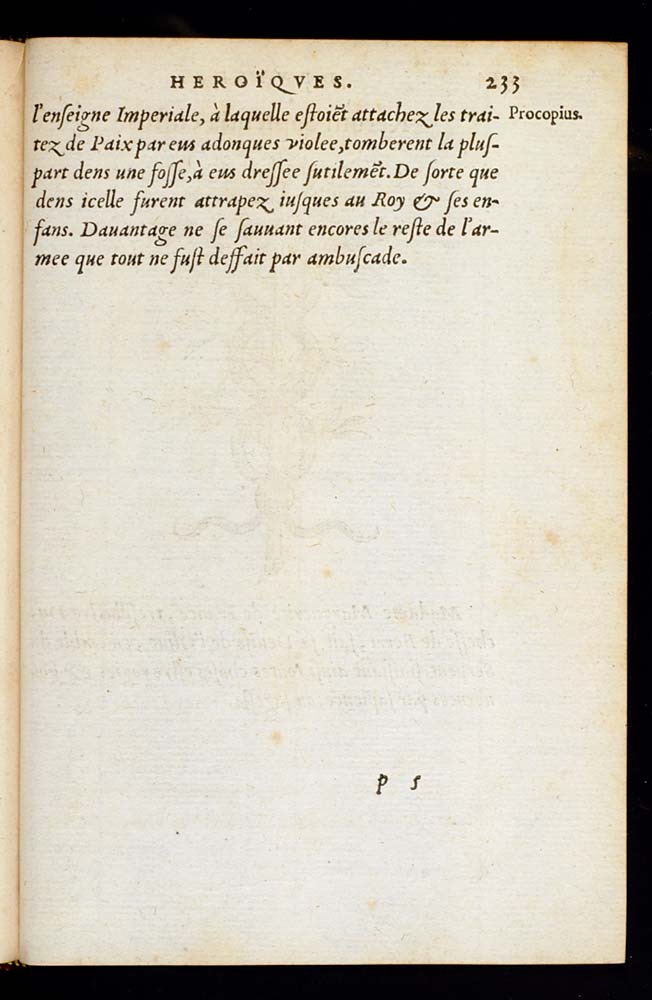 HEROÏQVES. 233
l'enseigne Imperiale, à laquelle estoiẽt attachez les trai- Procopius.
tez de Paix par eus adonques violee, tomberent la plus-
part dens une fosse, à eus dressee sutilemẽt. De sorte que
dens icelle furent attrapez iusques au Roy & ses en-
fans. Dauantage ne se sauuant encores le reste de l'ar-
mee que tout ne fust deffait par ambuscade.
p 5